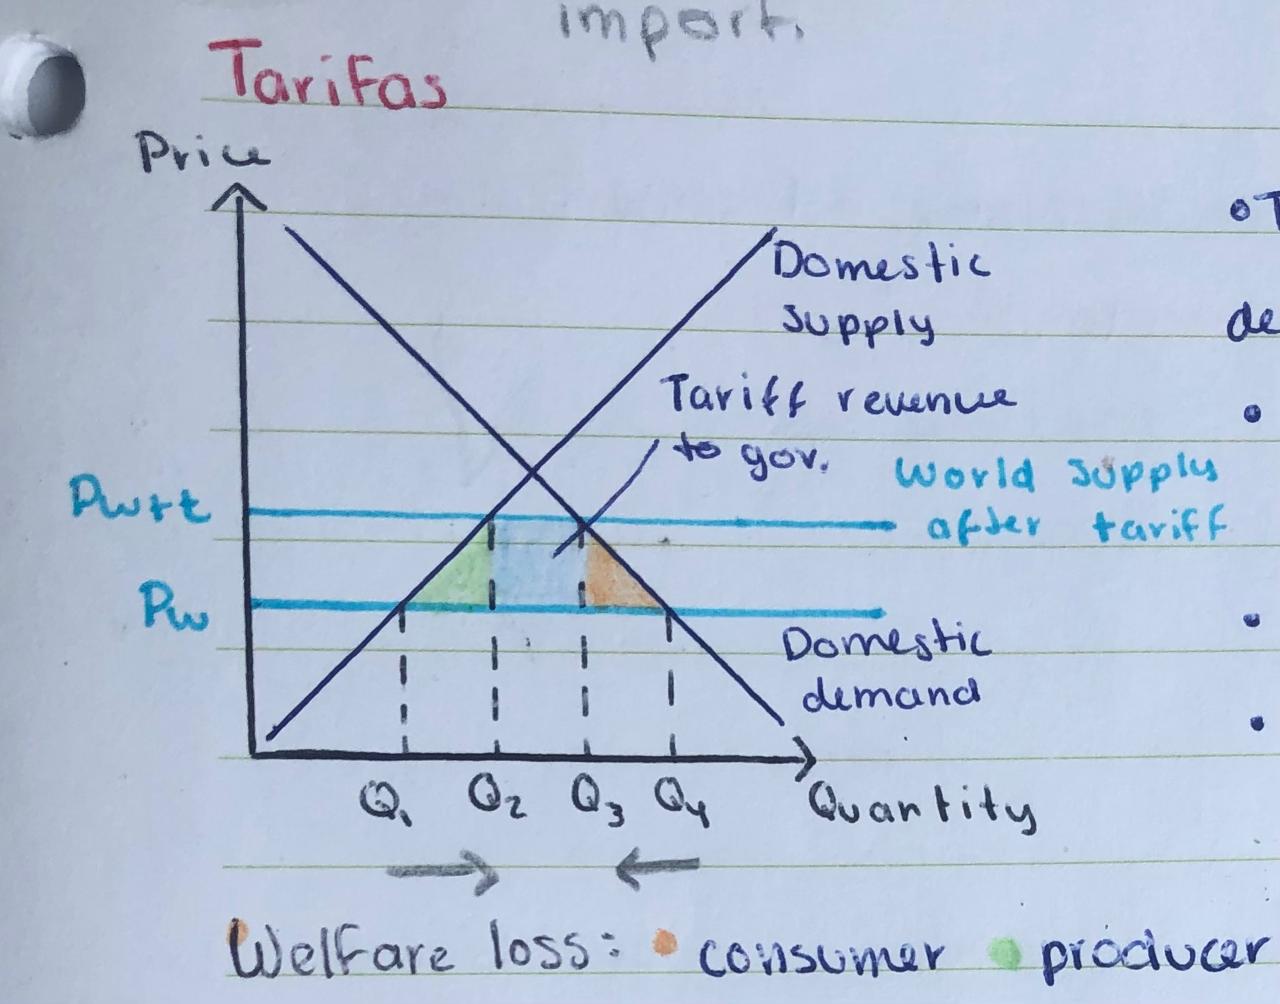 import.
Tarifas
Price
Domestic
supply
Tariff revenue
to gov.
World supply
after tariff
Pw+t
Pw
Domestic
demand
Q1 Q2 Q3 Q4 Quantity
Welfare loss: consumer producer
•T
de